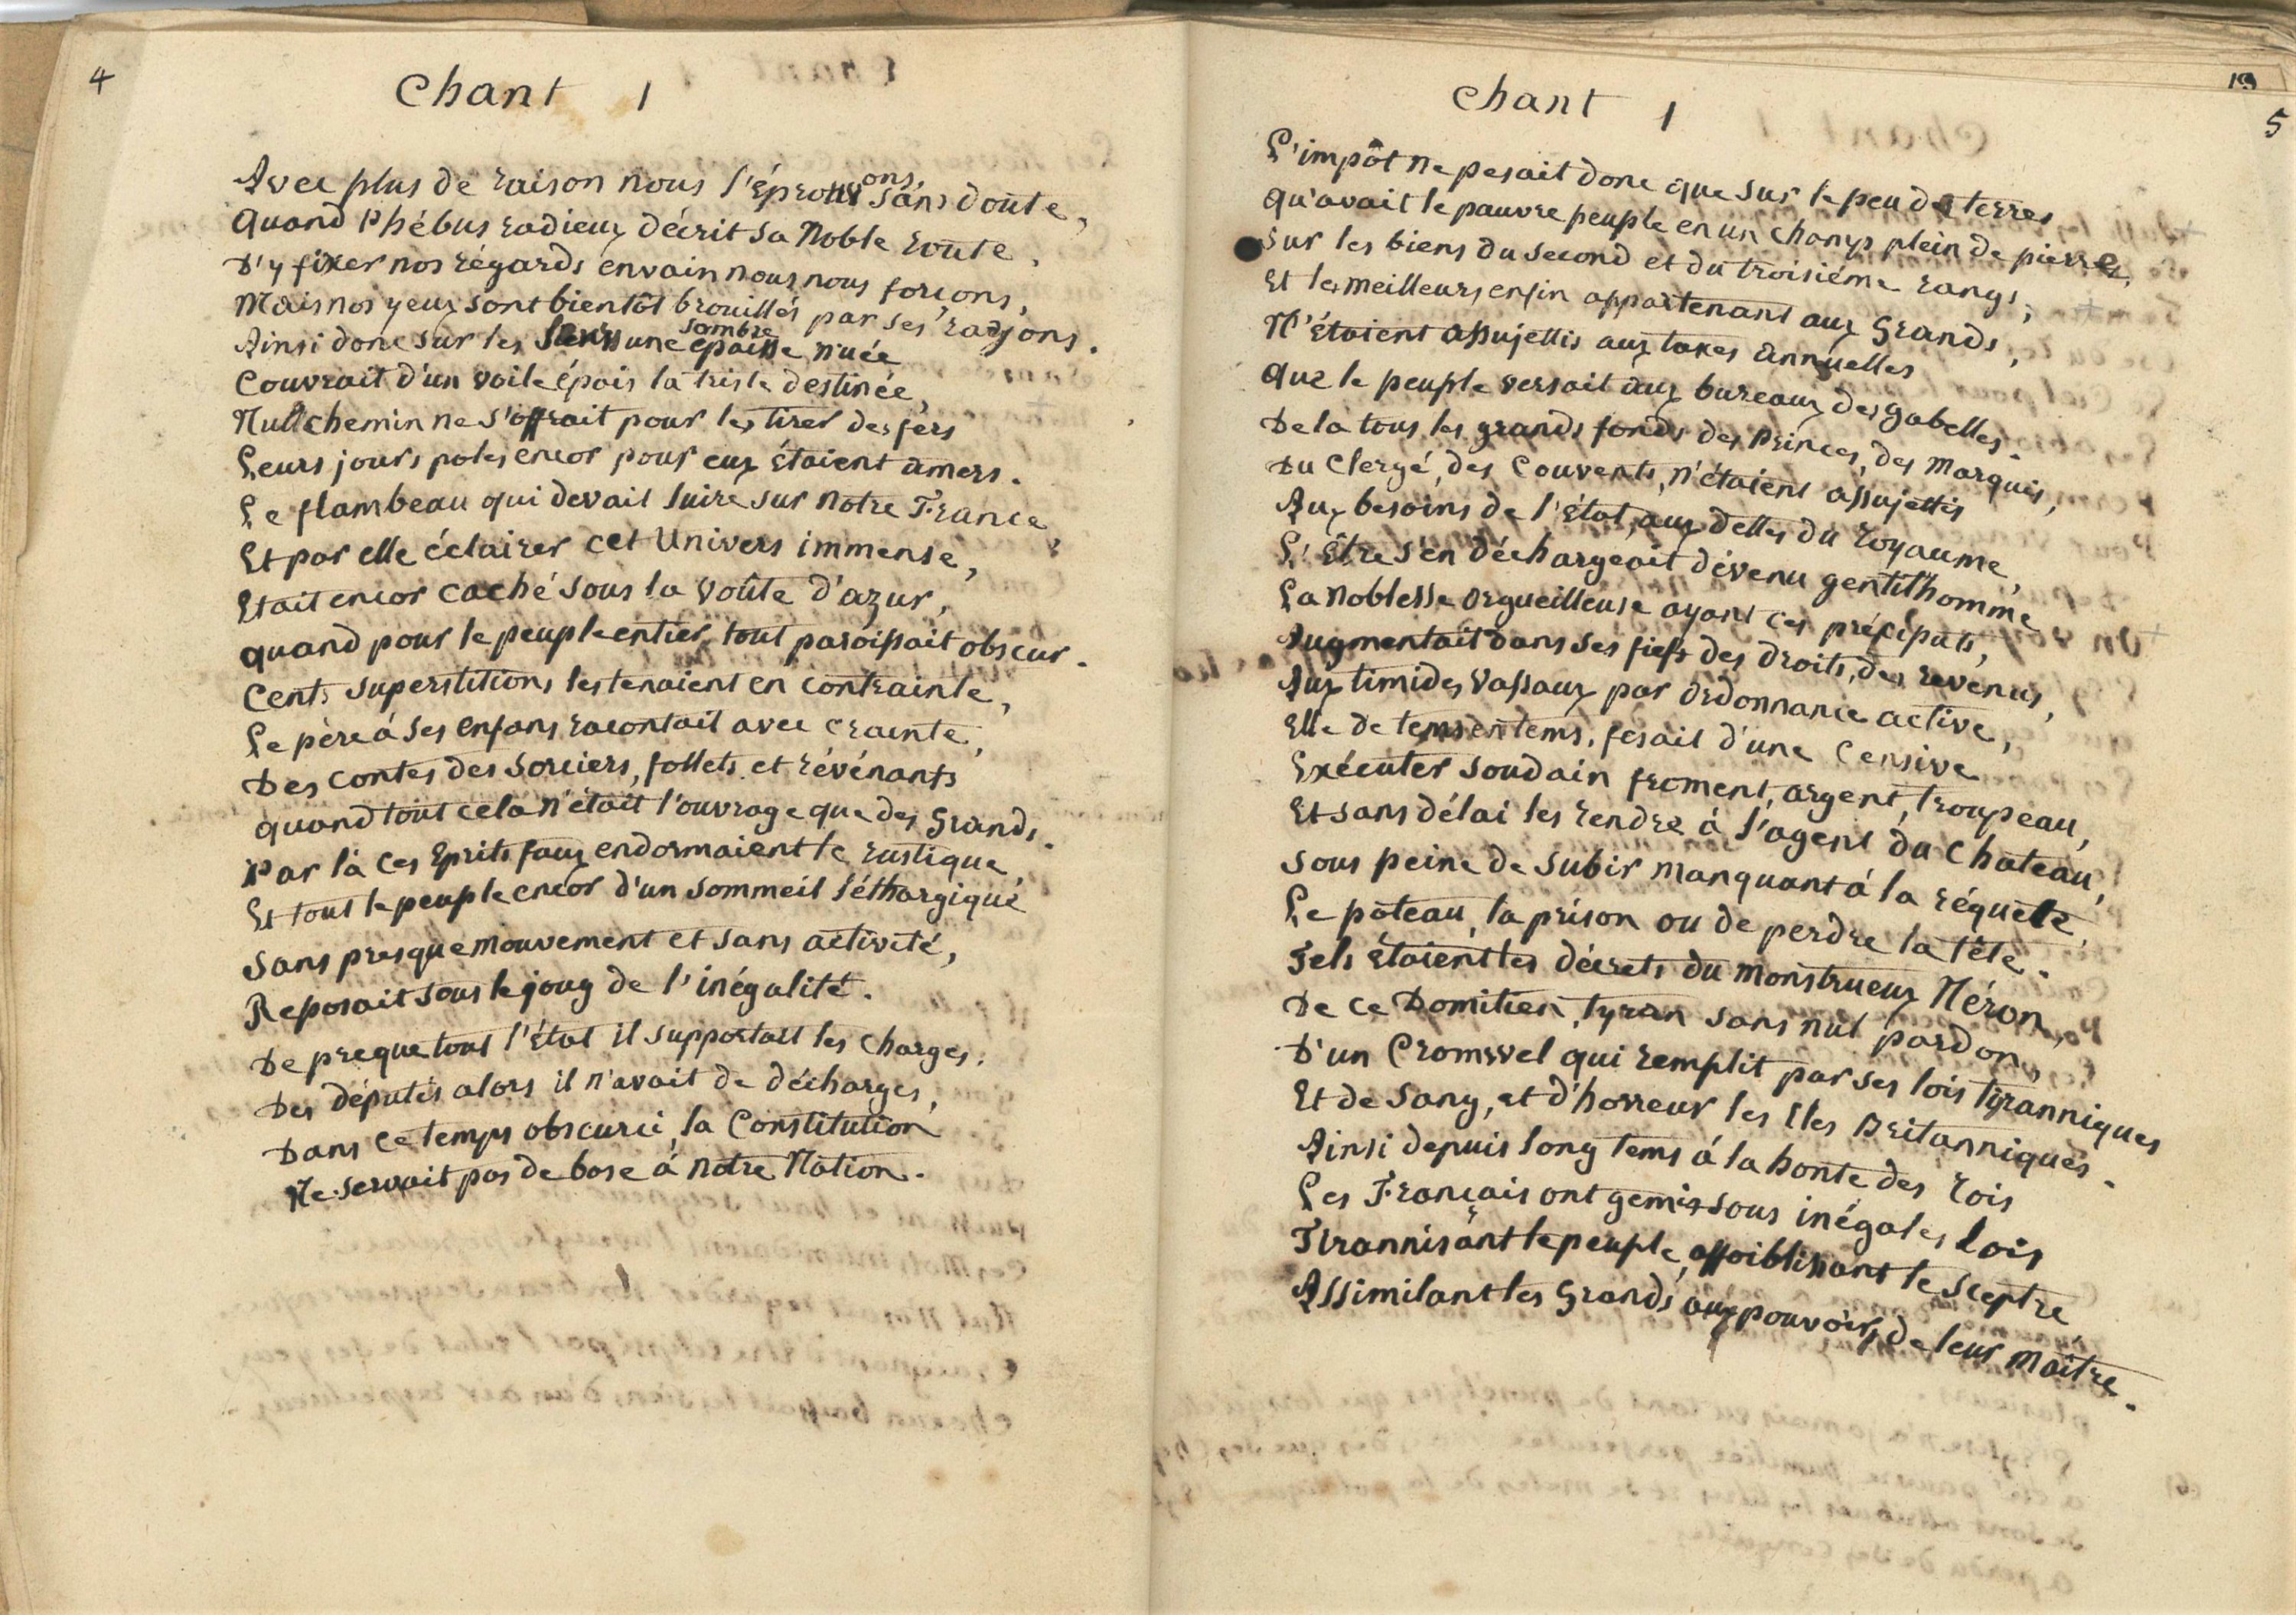 4
Chant 1
Avec plus de raison nous l'éprouvons sans doute,
Quand Phébus radieux décrit sa Noble route,
D'y fixer nos régards envain nous nous forçons,
Mais nos yeux sont bientôt brouillés par ses rayons.
Ainsi donc sur les une sombre nuée
Couvrait d'un voile épais la triste destinée,
Null chemin ne s'offrait pour les tirer des fers
Leurs jours poles encor pour eux étaient amers.
Le flambeau qui devait luire sur notre France,
Et par elle éclairer cet Univers immense,
Etait encor caché sous la voûte d'azur,
quand pour le peuple entier tout paroissait obscur.
Cents superstitions les tenaient en contrainte,
Le père à ses enfans racontait avec crainte,
Des contes des sorciers, follets et révénants
quand tout cela n'était l'ouvrage que des Grands.
Par là ces Eprits faux endormaient le rustique,
Et tout le peuple encor d'un sommeil léthargique
Sans presque mouvement et sans activité,
Reposait sous le joug de l'inégalité.
De preque tout l'Etat il supportait les charges,
Des députés alors il n'avait de décharges,
Dans ce temps obscurci, la Constitution
Ne servait pas de base à notre Nation.
19
5
Chant 1
L'impôt ne pesait donc que sur le peu de terres
Qu'avait le pauvre peuple en un champs plein de pierres,
Sur les biens du second et du troisiéme rangs,
Et les meilleurs enfin appartenant aux Grands,
N'étaient assujettis aux taxes annuelles
Que le peuple versait aux bureaux des gabelles.
De la tous les grands fonds des Princes, des Marquis,
Du Clergé, des Couvents, n'étaient assujettis
Aux besoins de l'État, aux dettes du royaume,
L'Être s'en déchargeait dévenu gentilhomme
La Noblesse orgueilleuse ayant ces préciputs,
Augmentait dans ses fiefs des droits, des revenus,
Aux timides vassaux par ordonnance active,
Elle de tems en tems, fesait d'une censive
Exécuter soudain froment, argent, troupeau,
Et sans délai les rendre à l'agent du Chateau,
Sous peine de subir manquant à la réquete,
Le poteau, la prison ou de perdre la tête.
Tels étaient les décrets du monstrueux Néron,
De ce Domitien, tyran sans nul pardon,
D'un Cromwel qui remplit par ses lois tyranniques
Et de sang, et d'horreur les Iles Britanniques.
Ainsi depuis long tems á la honte des rois
Les Français ont gemis sous inégales lois
Tirannisant le peuple, affoiblissant le sceptre
Assimilant les Grands aux pouvoirs de leur Maître.